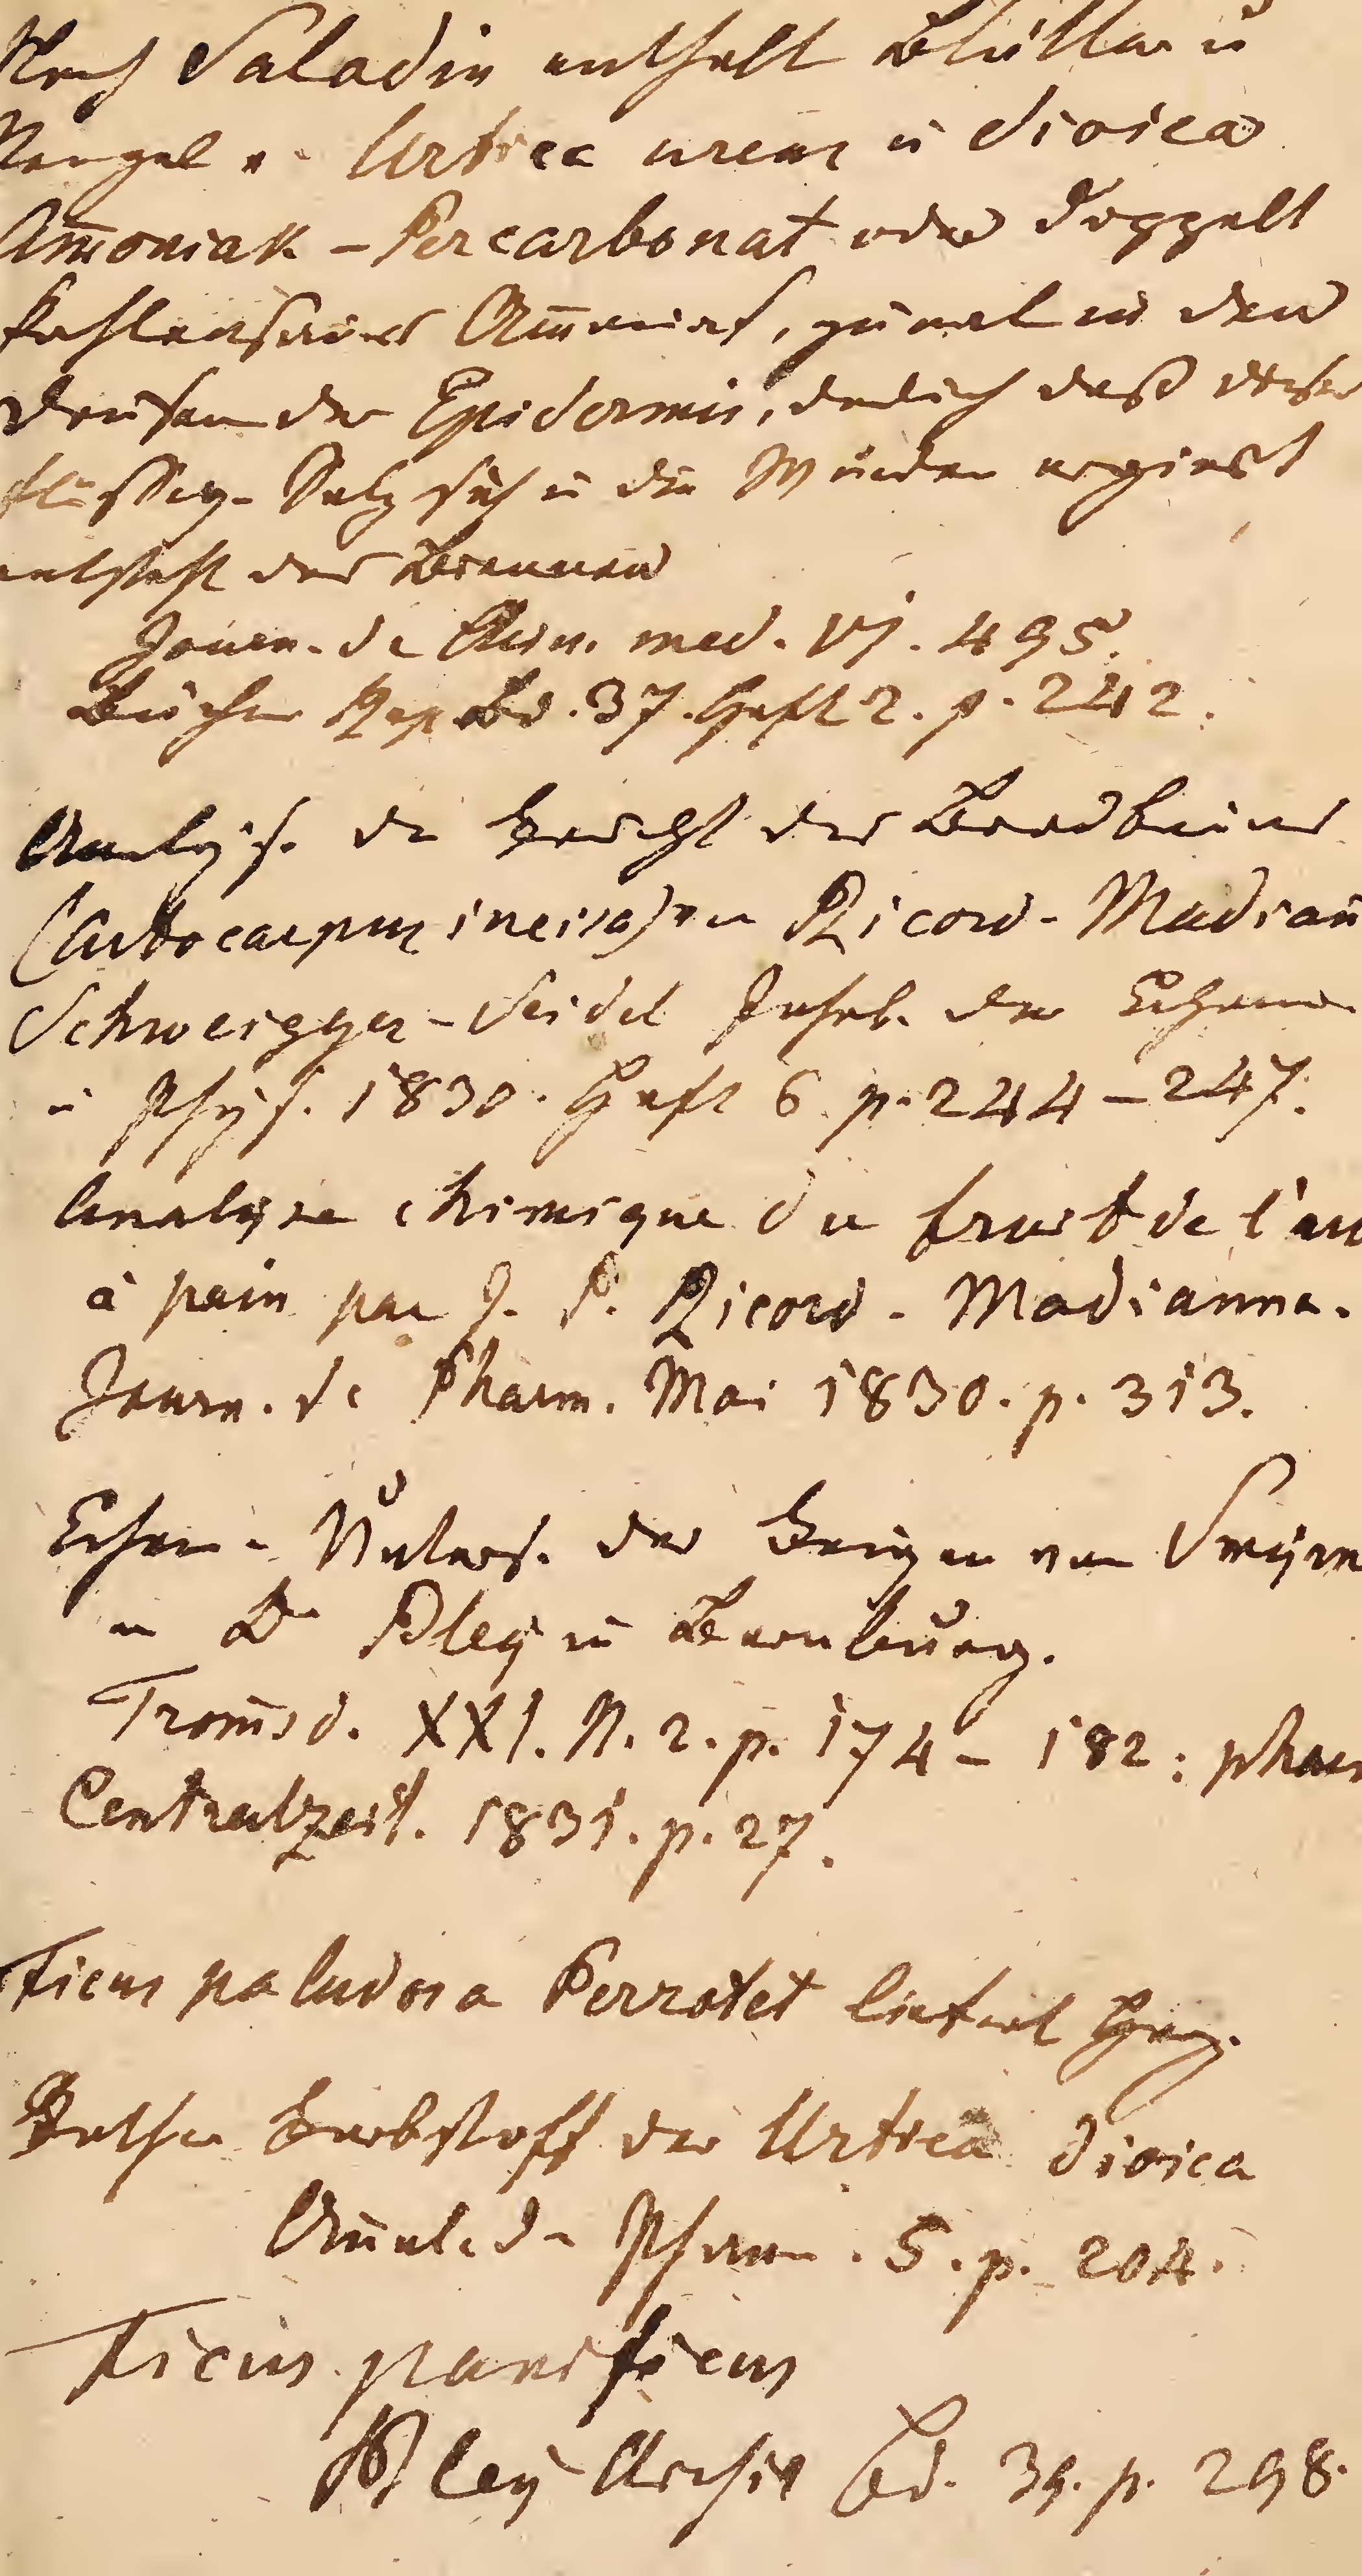 Nach Saladin enthält Blätter u
Stengel v. Urtica urens u dioica
Am̅oniak - Percarbonat oder doppelt
kohlensaures Am̅oniak, zumal in den
Drüsen der Epidermis, dadurch daß dieses
flüssige Salz sich in die Wunden ergiest
entsteht das Brennen
Journ. de Chim. med. VI. 495.
Büchn Rep Bd. 37. Heft 2. p. 242.
Analys. der Frucht des Brodbaums
(Artocarpus incisa) von Ricord - Madian̅
Schweigger - Seidel Jahrb. der Chemie
u Phys. 1830. Heft 6. p. 244 - 247.
Analyse chimique du fruit de l'ar
à pain par J. P. Ricord - Madianna.
Journ. de Pharm. Mai 1830. p. 313.
Chem. Unters. der Feigen von Smyrn
v. Dr Bley in Bernburg.
Trom̅sd. XXI. N. 2. p. 174 - 182; phar
Centralzeit. 1831. p. 27.
Ficus paludosa Perrotet liefert Harz.
Rother Farbstoff der Urtica dioica
An̅al. d. Pharm. 5. p. 204.
Ficus panificus
Bley Archiv Bd. 39. p. 298.